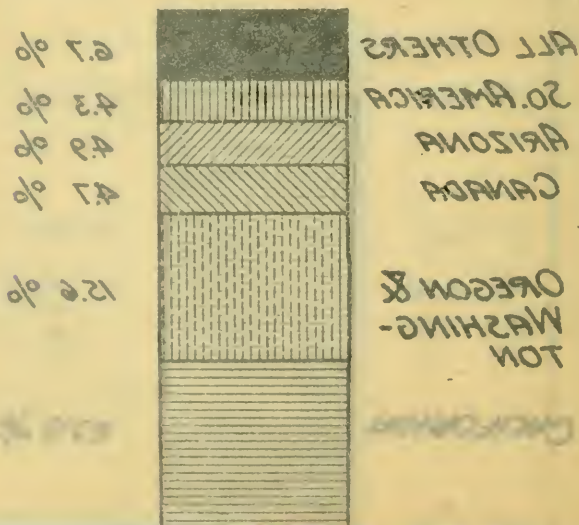 ALL OTHERS 6.7 %
SO. AMERICA 4.3 %
ARIZONA 4.9 %
CANADA 4.7 %
OREGON & 15.6 %
WASHING-
TON
CALIFORNIA